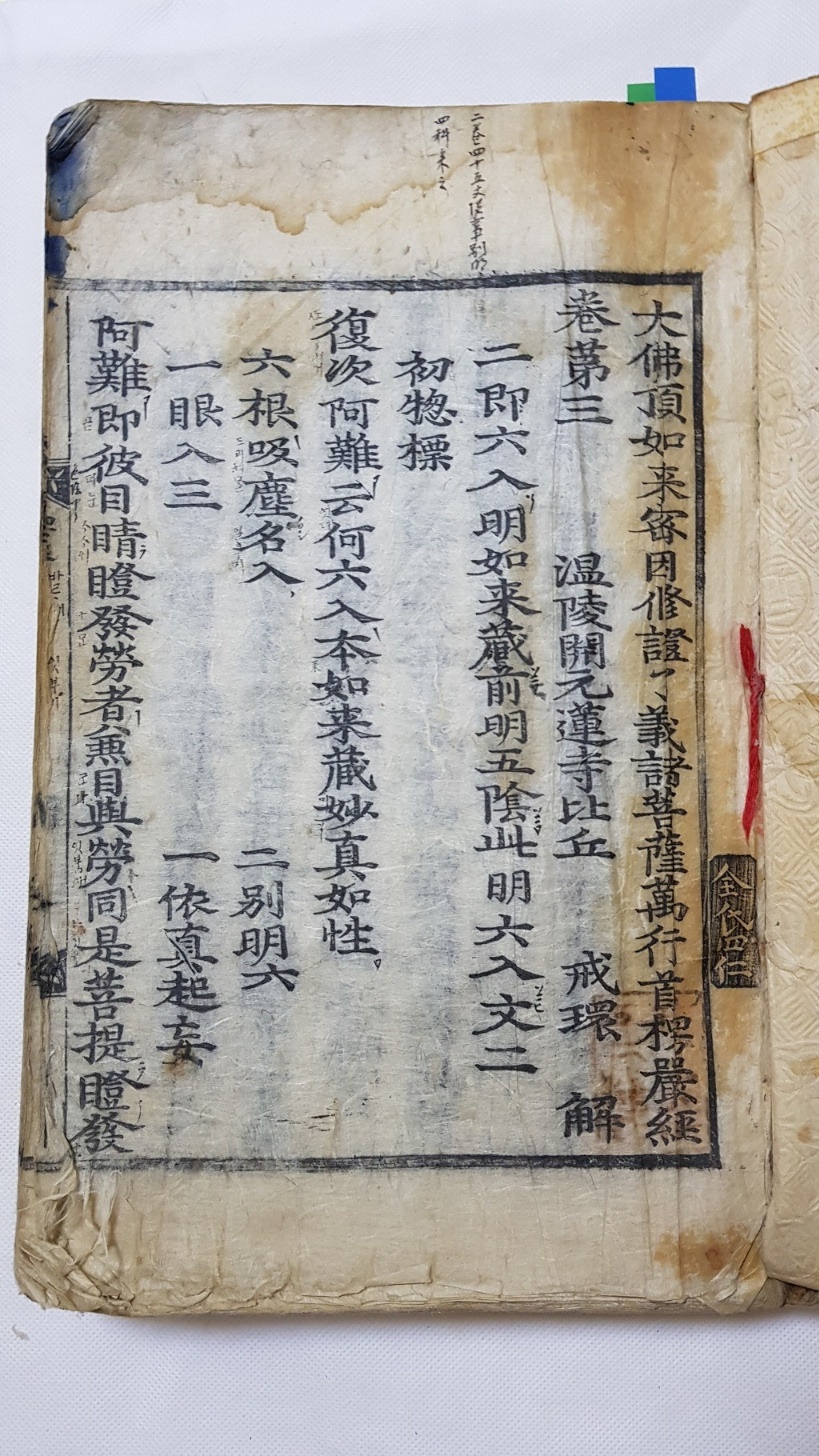 大佛頂如来宻因修證了義諸菩薩萬行首楞嚴經
卷第三 温陵開元蓮寺比丘 戒環 解
二即六入明如来藏前明五陰此明六入文二
初揔標
復次阿難云何六入本如来藏妙真如性
六根吸塵名入 二別明六
一眼入三 一依真起妄
阿難即彼目睛瞪發勞者兼目與勞同是菩提瞪發